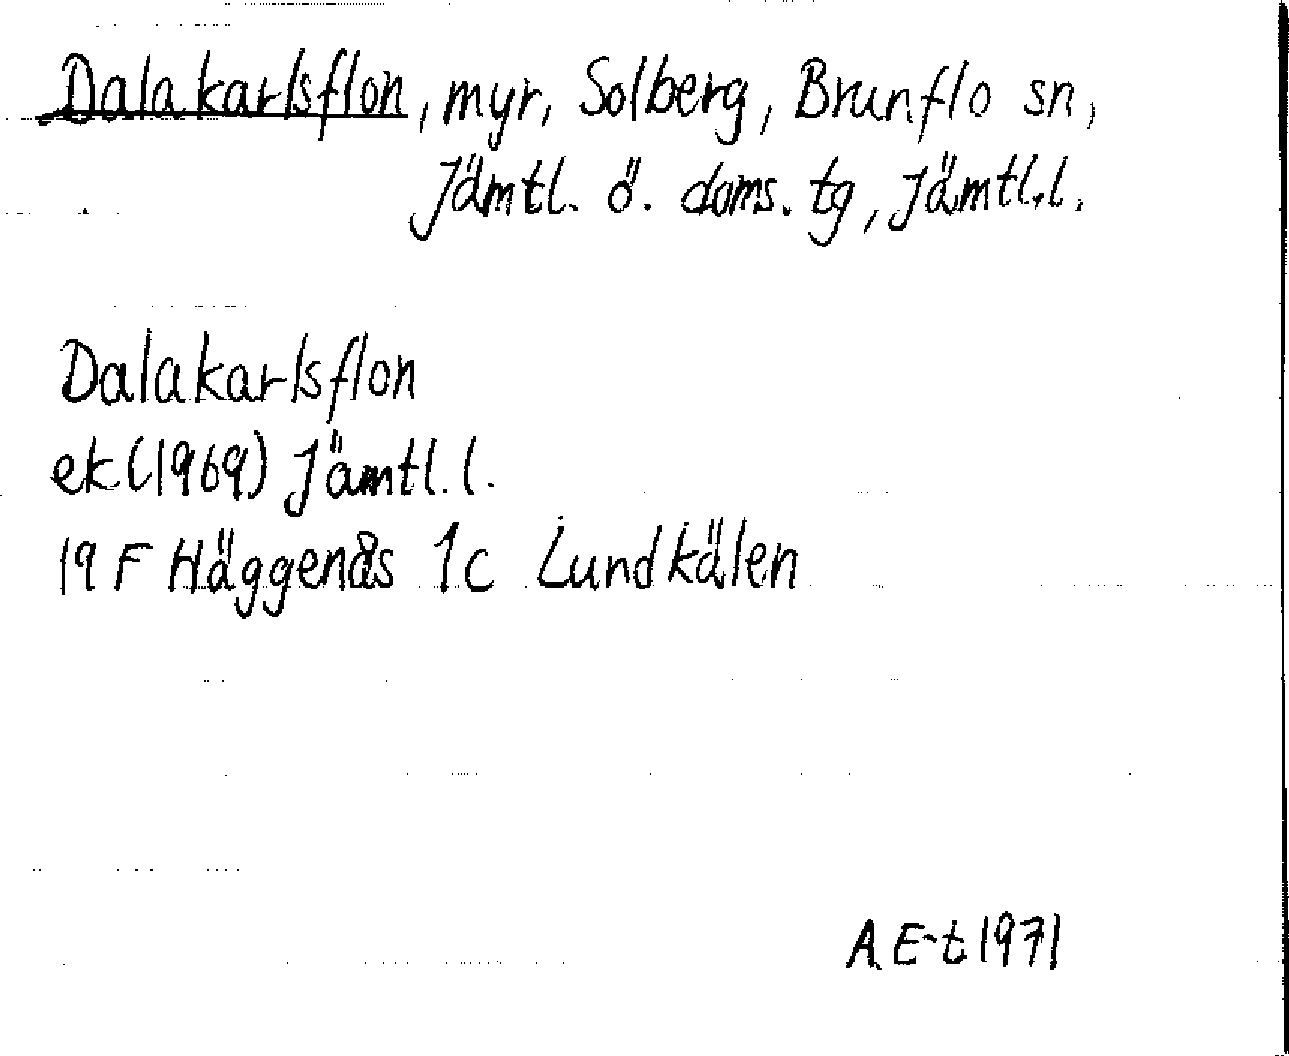 Dalakarlsflon, myr, Solberg, Brunflo sn,
Jämtl. ö. doms. tg, Jämtl.l.
Dalakarlsflon
ek (1969) Jämtl. l.
19 F Häggenås 1c Lundkälen
A E-t 1971